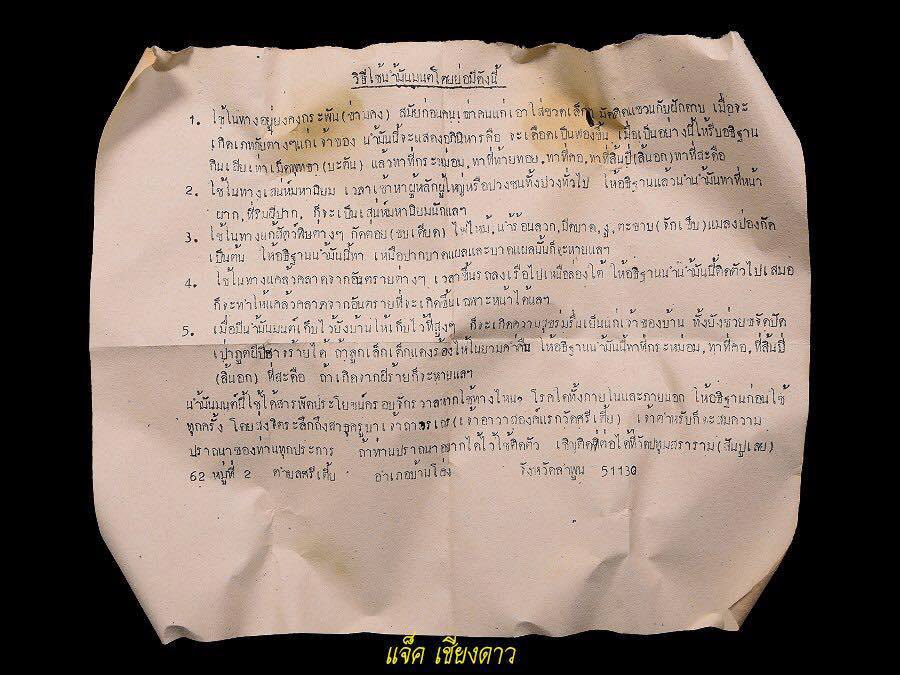 วิธีใช้น้ำมันมนต์โดยย่อมีดังนี้
1. ใช้ในทางอยู่ยงคงกระพัน(ข่ามคง) สมัยก่อนคนเฒ่าคนแก่เอาใส่ขวดเล็กๆ มัดติดแขวนกับฝักดาบ เมื่อจะ
เกิดเภทภัยต่างๆแก่เจ้าของ น้ำมันนี้จะแสดงอภินิหารคือ จะเดือดเป็นฟองขึ้น เมื่อเป็นอย่างนี้ให้รีบอธิฐาน
กินเสียเท่าเม็ดพุทธา(บะตัน) แล้วทาที่กระหม่อม,ทาที่ท้ายทอย,ทาที่คอ,ทาที่ลิ้นปี่(ลิ้นอก)ทาที่สะดือ
2. ใช้ในทางเสน่ห์มหานิยม เวลาเข้าหาผู้หลักผู้ใหญ่หรือปวงชนทั้งปวงทั่วไป ให้อธิฐานแล้วนำน้ำมันทาที่หน้า
ผาก,ที่ริมฝีปาก, ก็จะเป็นเสน่ห์มหานิยมนักแลฯ
3. ใช้ในทางแก้พิษต่างๆ กัดต่อย(ขบเคี่ยด) ไฟไหม้,น้ำร้อนลวก,มีดบาด,งู,ตะขาบ(จักเข็บ)แมลงป่องกัด
เป็นต้น ให้อธิฐานน้ำมันนี้ทา เหนือปากบาดแผลและบาดแผลนั้นก็จะหายแลฯ
4. ใช้ในทางแคล้วคลาดจากอันตรายต่างๆ เวลาขึ้นรถลงเรือไปเหนือล่องใต้ ให้อธิฐานนำน้ำมันนี้ติดตัวไปเสมอ
ก็จะทำให้แคล้วคลาดจากอันตรายที่จะเกิดขึ้นเฉพาะหน้าได้แลฯ
5. เมื่อมีน้ำมันมนต์เก็บไว้ยังบ้านให้เก็บไว้ที่สูงๆ ก็จะเกิดความสุขร่มรื่นเย็นแก่เจ้าของบ้าน ทั้งยังช่วยขจัดปัด
เป่าภูตผีปีศาจร้ายได้ ถ้าลูกเล็กเด็กแดงร้องไห้ในยามค่ำคืน ให้อธิฐานน้ำมันนี้ทาที่กระหม่อม,ทาที่คอ,ที่ลิ้นปี่
(ลิ้นอก) ที่สะดือ ถ้าเกิดจากผีร้ายก็จะหายแลฯ
น้ำมันมนต์นี้ใช้ได้สารพัดประโยชน์ครอบจักรวาลหากใช้ทางไหนๆ โรคใดทั้งภายในและภายนอก ให้อธิฐานก่อนใช้
ทุกครั้ง โดยส่งจิตระลึกถึงสาธุครูบาเจ้า (เจ้าอาวาสองค์แรกวัดศรีเตี้ย) เจ้าตำหรับก็จะสมความ
ปราถนาของท่านทุกประการ ถ้าท่านปราถนาอยากได้ไว้ใช้ติดตัว เชิญติดต่อได้ที่วัดปทุมสราราม(สันปูเลย)
62 หมู่ที่ 2 ตำบลศรีเตี้ย อำเภอบ้านโฮ่ง จังหวัดลำพูน 51130
แจ็ค เชียงดาว